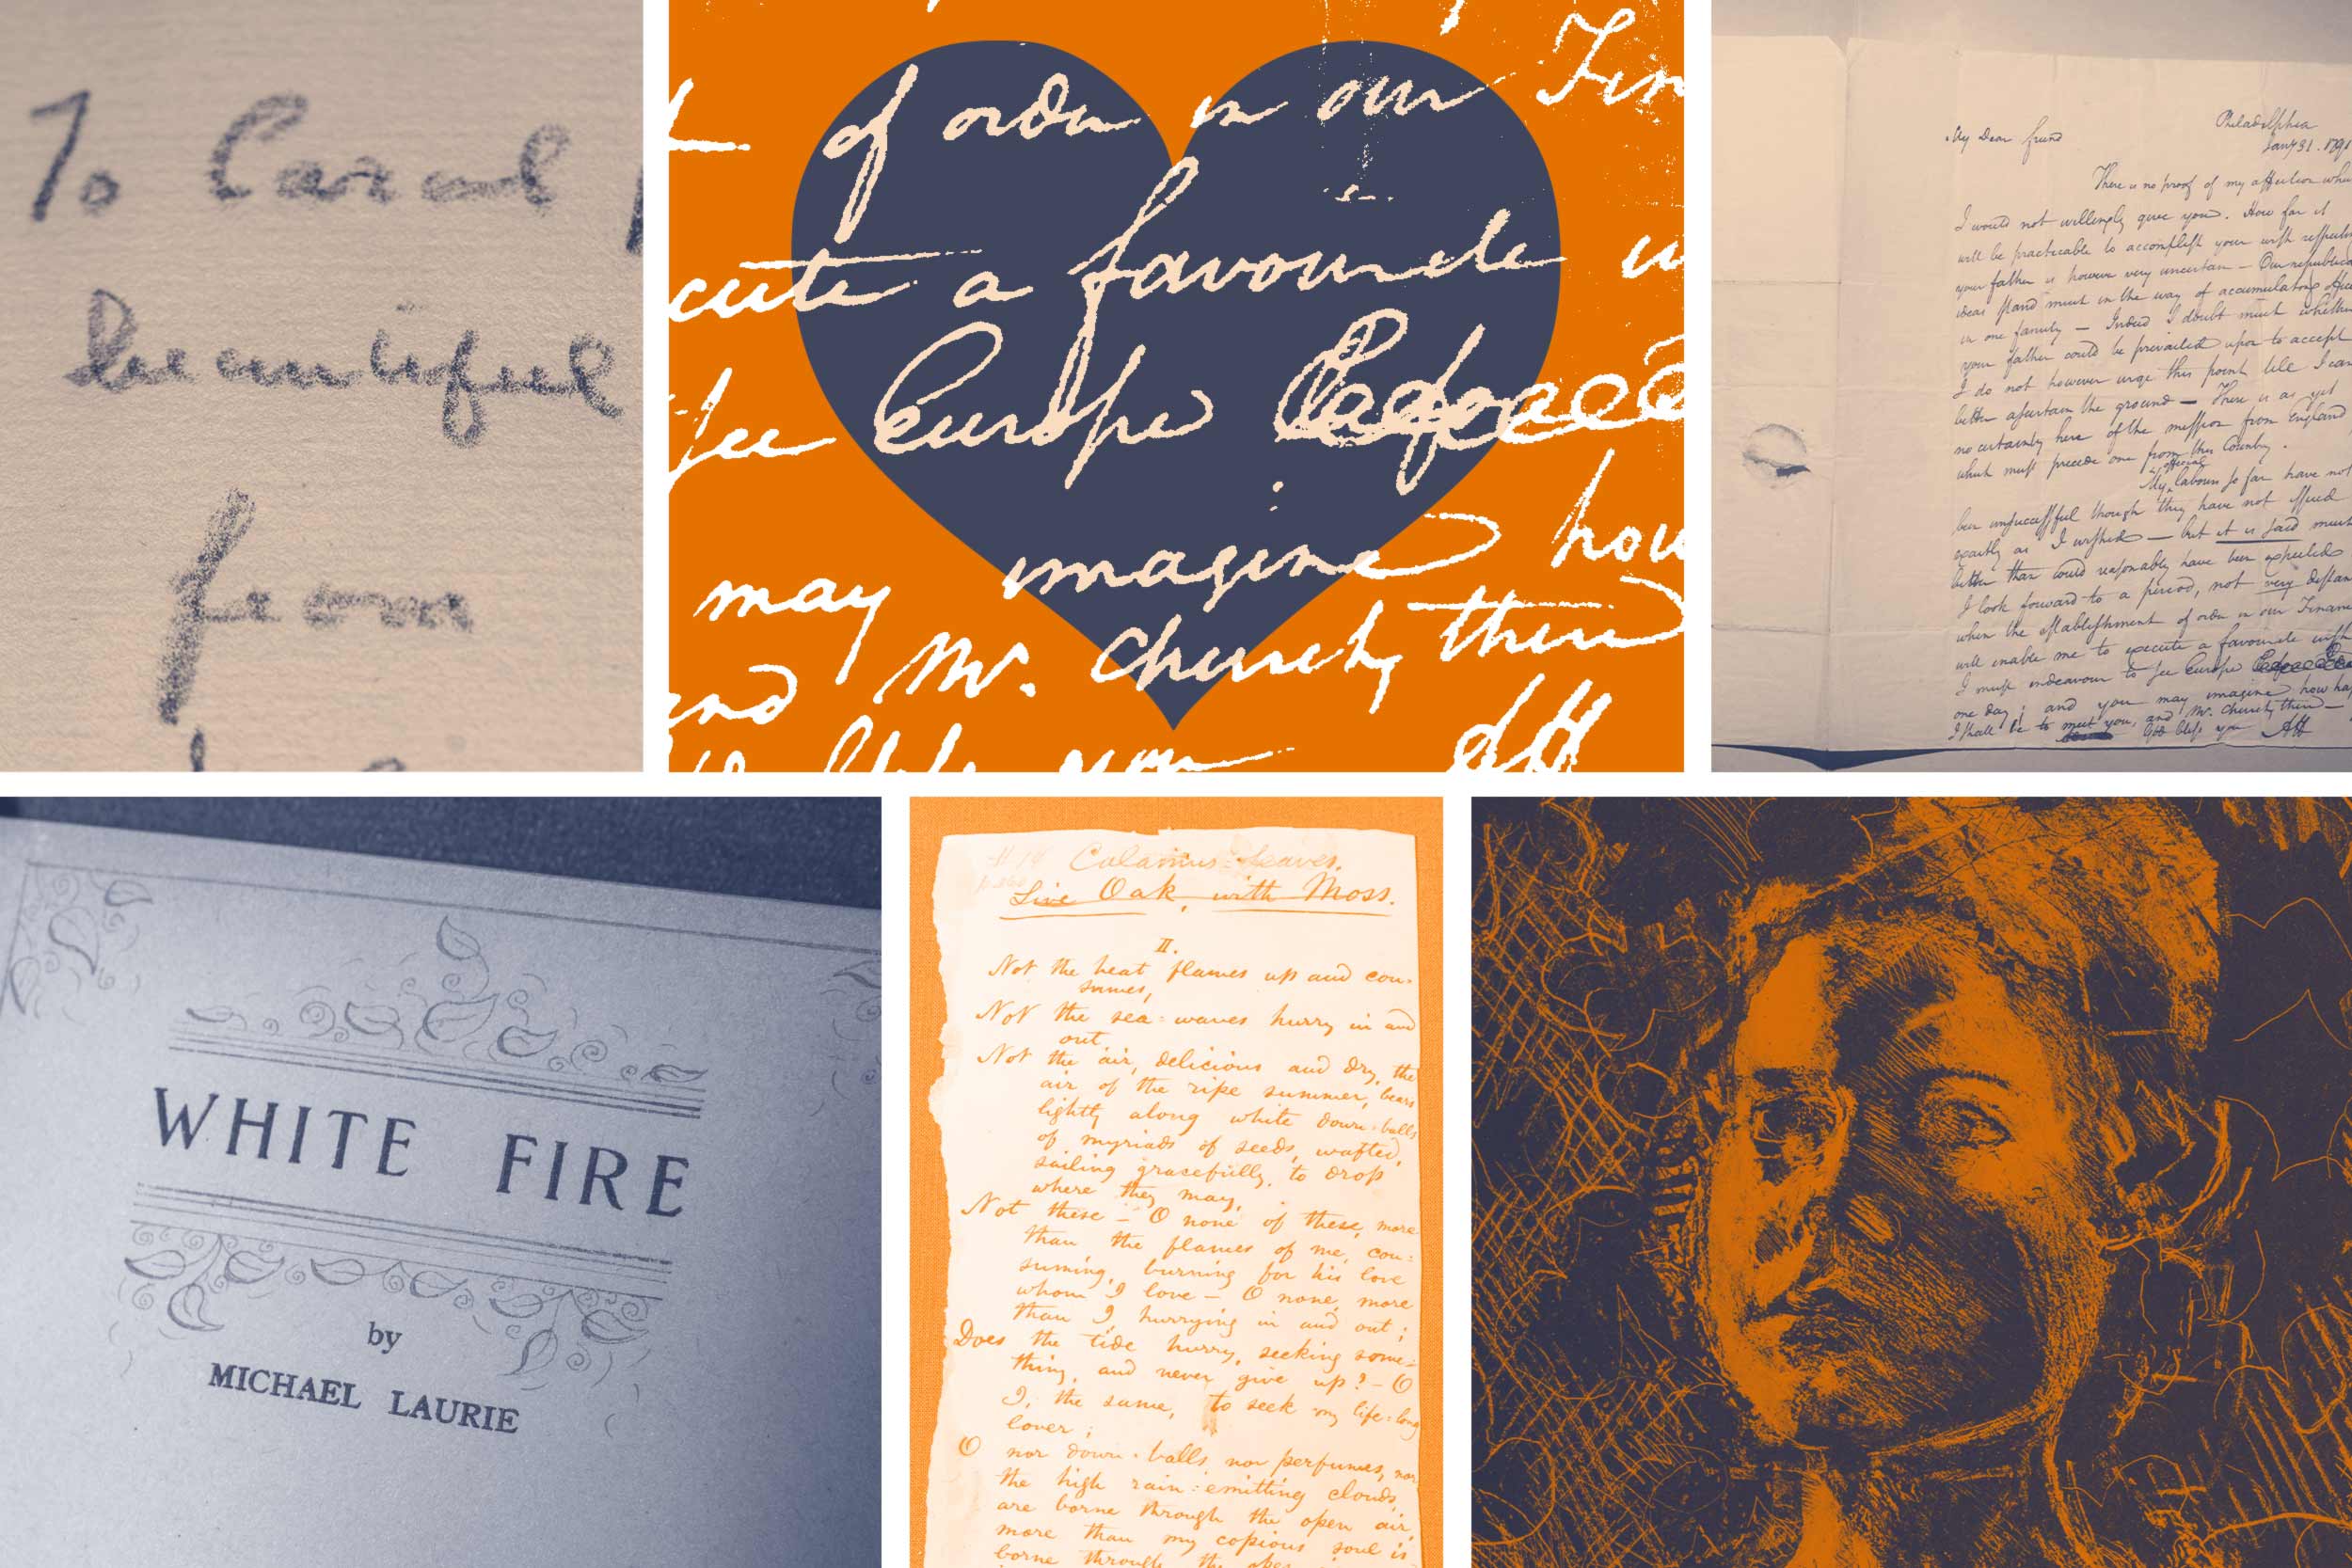 To Carol
beautiful
from
of order in our Fin
cute a favourite w
see Europe
may imagine how
and Mr. Church, there
AH
Philadelphia
My Dear friend
Jany 31. 1791
There is no proof of my affection whi
I would not willingly give you. How far it
will be practicable to accomplish your wish respecti
your father is however very uncertain — Our republica
ideas stand much in the way of accumulating offic
in one family — Indeed I doubt much whethe
your father could be prevailed upon to accept
I do not however urge this point till I can
better ascertain the ground — There is as yet
no certainty here of the mission from England
which must precede one from this Country.
My official labours so far have not
been unsuccessful though they have not effected
exactly as I wished — but it is said much
better than could reasonably have been expected
I look forward to a period, not very distan
when the establishment of order in our Finan
will enable me to execute a favourite wish
I must endeavour to see Europe
one day; and you may imagine how hap
I shall be to meet you, and Mr. Church, there —
God bless you AH
WHITE FIRE
by
MICHAEL LAURIE
Calamus-Leaves.
Live Oak, with Moss.
II.
Not the heat flames up and con-
sumes,
Not the sea-waves hurry in and
out,
Not the air, delicious and dry, the
air of the ripe summer, bears
lightly along white down-balls
of myriads of seeds, wafted,
sailing gracefully, to drop
where they may,
Not these — O none of these, more
than the flames of me, con-
suming, burning for his love
whom I love — O none, more
than I, hurrying in and out;
Does the tide hurry, seeking some-
thing, and never give up? — O
I, the same, to seek my life-long
lover;
O nor down-balls, nor perfumes, nor
the high rain-emitting clouds,
are borne through the open air,
more than my copious soul is
borne through the open